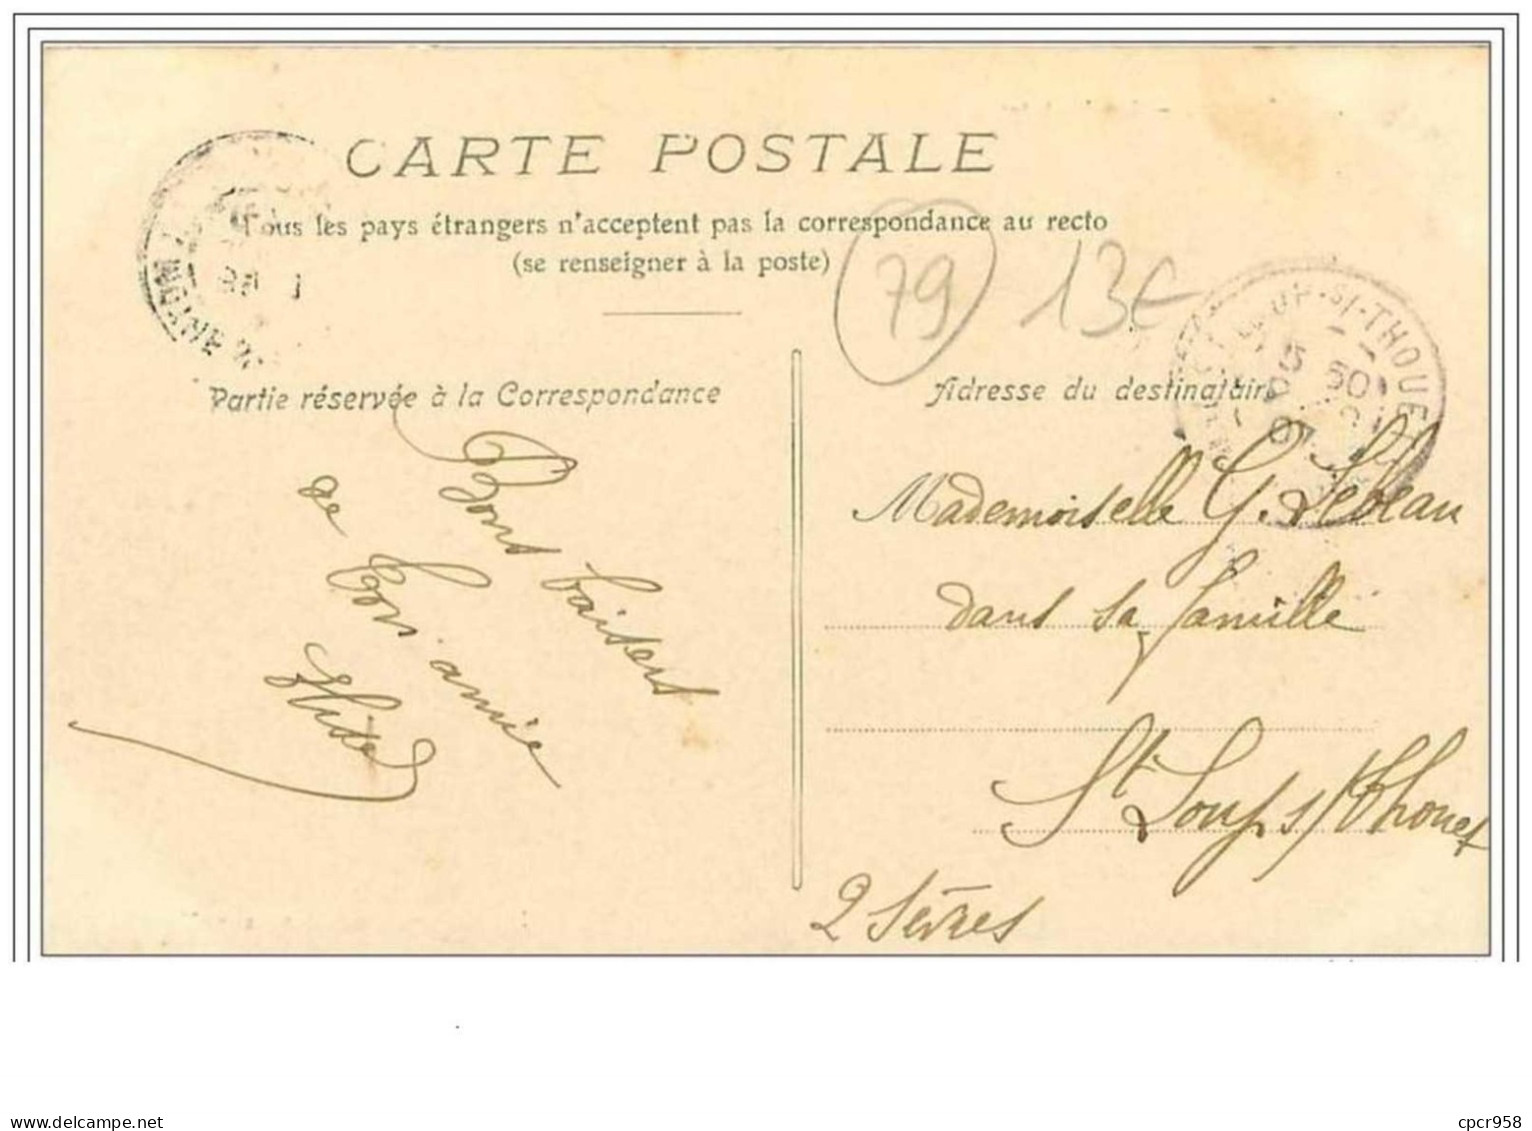 CARTE POSTALE
Tous les pays étrangers n'acceptent pas la correspondance au recto
(se renseigner à la poste)
79
13€
Partie réservée à la Correspondance
Adresse du destinataire
Bons baisers
de ton amie
Mademoiselle G. Lebeau
dans sa famille
St Loup s/ Thouet
2 Sèvres
LOUP-S/-THOUET
cpcr958